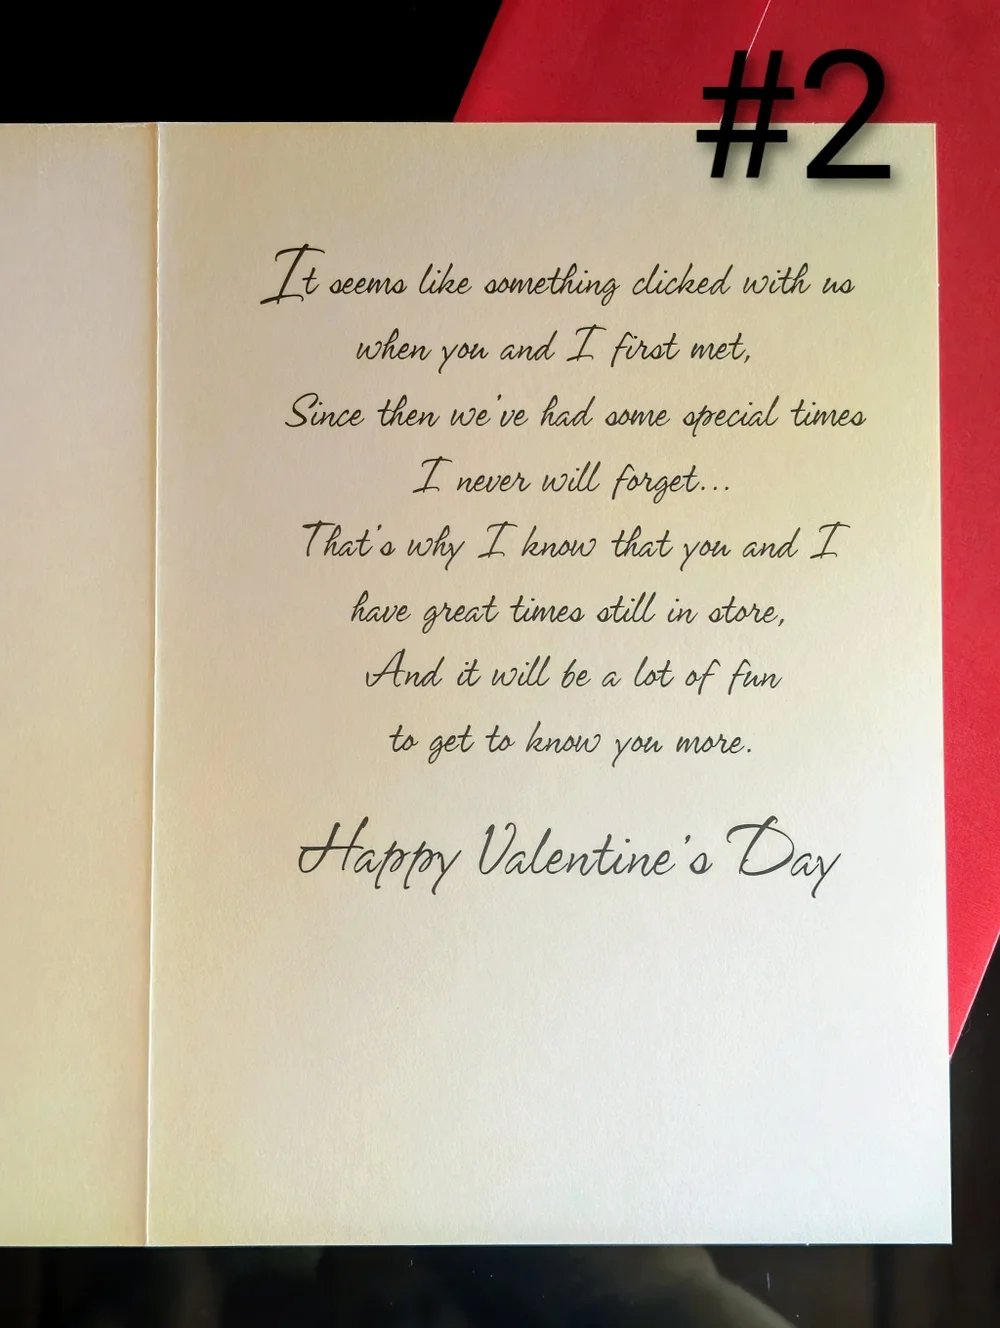 #2
It seems like something clicked with us
when you and I first met,
Since then we've had some special times
I never will forget...
That's why I know that you and I
have great times still in store,
And it will be a lot of fun
to get to know you more.
Happy Valentine's Day